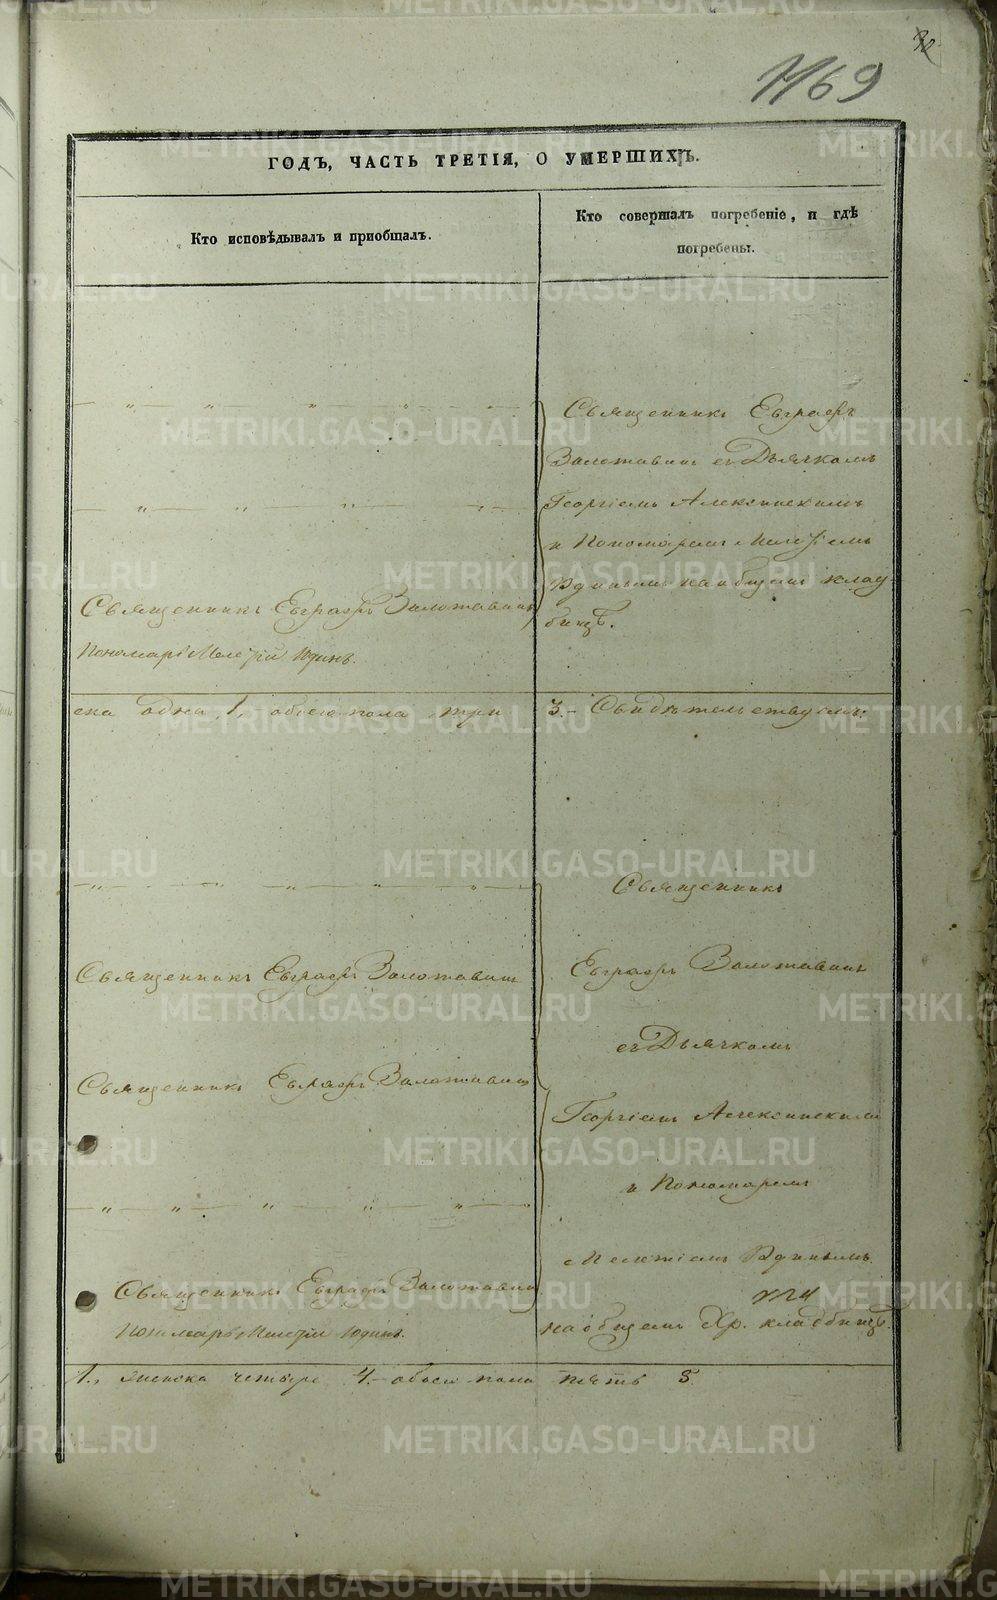 1169
ГОДЪ, ЧАСТЬ ТРЕТІЯ, О УМЕРШИХЪ.
Кто исповѣдывалъ и пріобщалъ.
Кто совершалъ погребеніе, и гдѣ
погребены.
Священникъ Евграфъ
Золотавинъ съ Дьячкомъ
Георгіемъ Алексинскимъ
и Пономаремъ Мелетіемъ
Юдинымъ на общемъ клад-
бищѣ.
Священникъ Евграфъ Золотавинъ
Пономарь Мелетій Юдинъ.
ска одна, 1, обоего пола три 3. – Свидѣтельствуемъ:
Священникъ
Евграфъ Золотавинъ
съ Дьячкомъ
Георгіемъ Алексинскимъ
и Пономаремъ
Мелетіемъ Юдинымъ
на общемъ Хр. кладбищѣ.
Священникъ Евграфъ Золотавинъ
Священникъ Евграфъ Золотавинъ
Священникъ Евграфъ Золотавинъ
Пономарь Мелетій Юдинъ.
1., женска четыре 4. – обоего пола пять 5.
METRIKI.GASO-URAL.RU